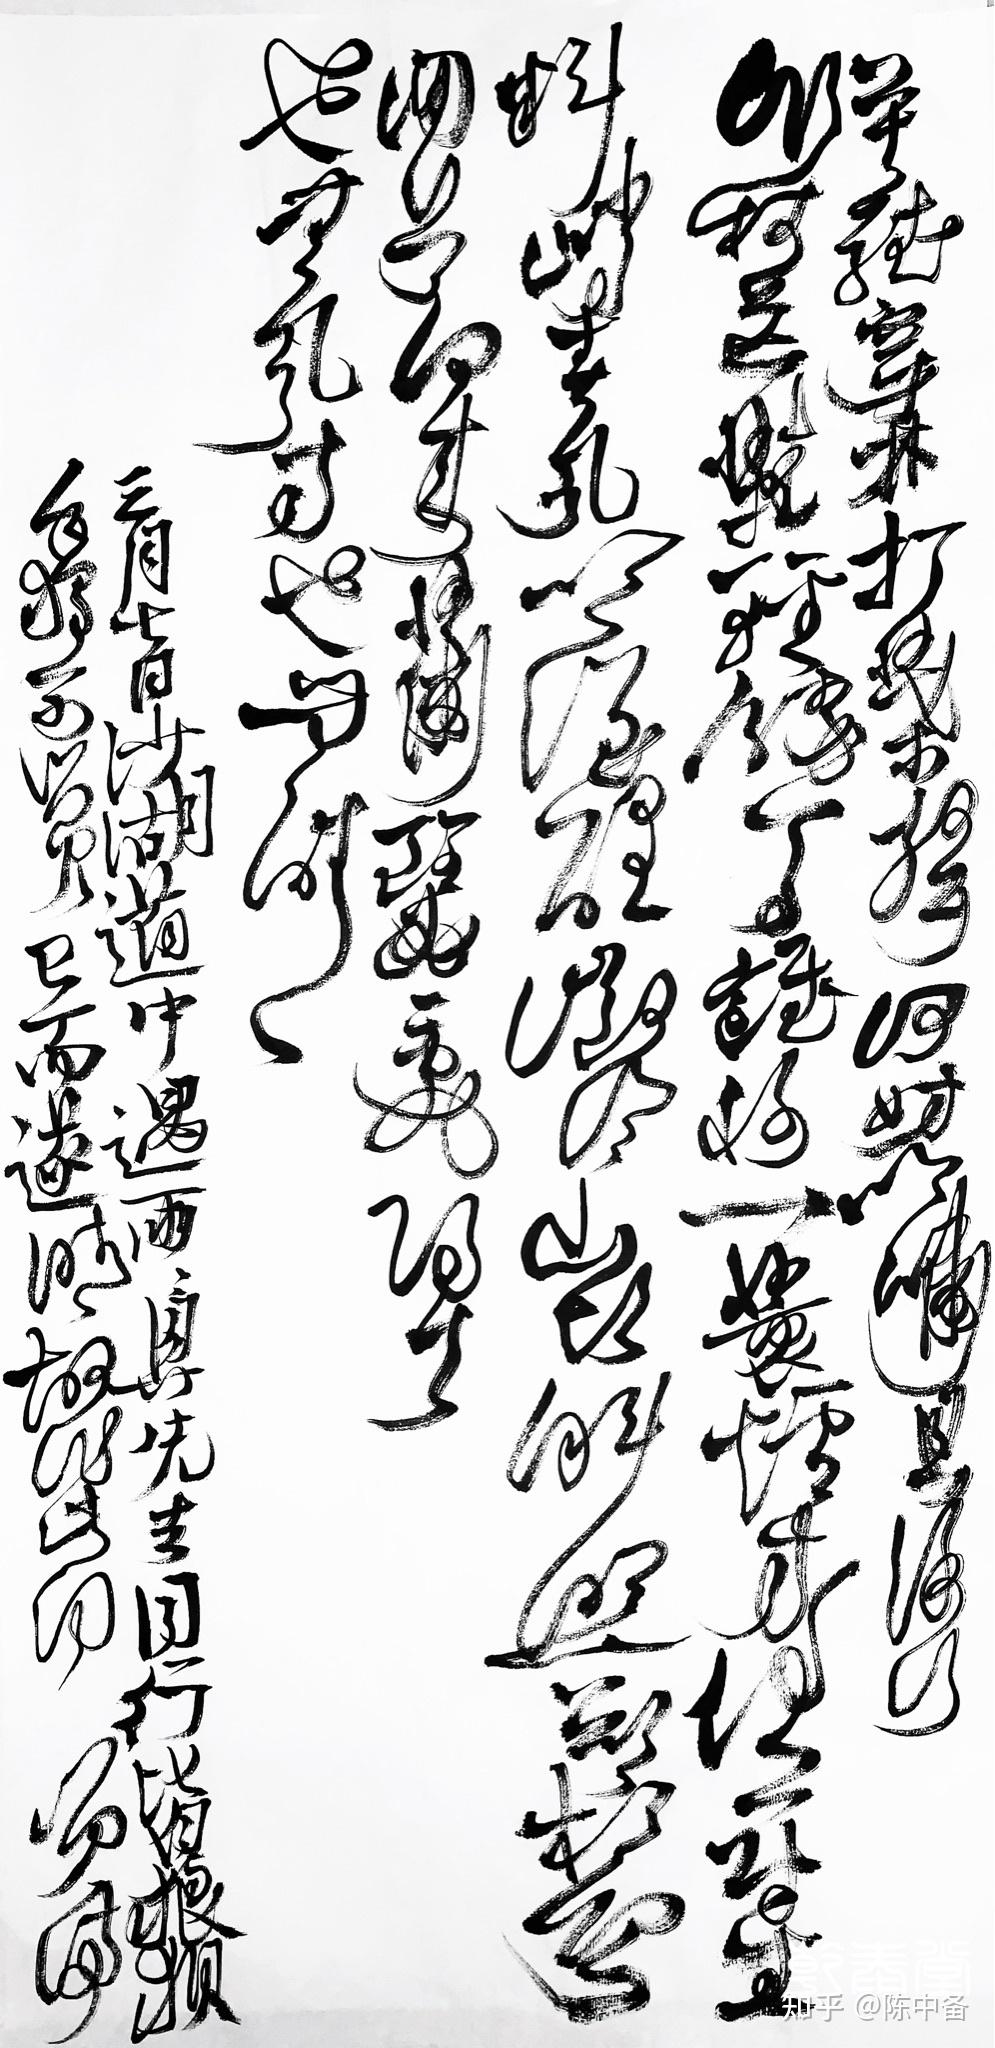 莫聽穿林打葉聲何妨吟嘯且徐行
竹杖芒鞋輕勝馬誰怕一蓑煙雨任平生
料峭春風吹酒醒微冷山頭斜照卻相迎
回首向來蕭瑟處歸去
也無風雨也無晴
三月七日沙湖道中遇雨雨具先去同行皆狼狽
余獨不覺已而遂晴故作此詞
知乎 @陈中备